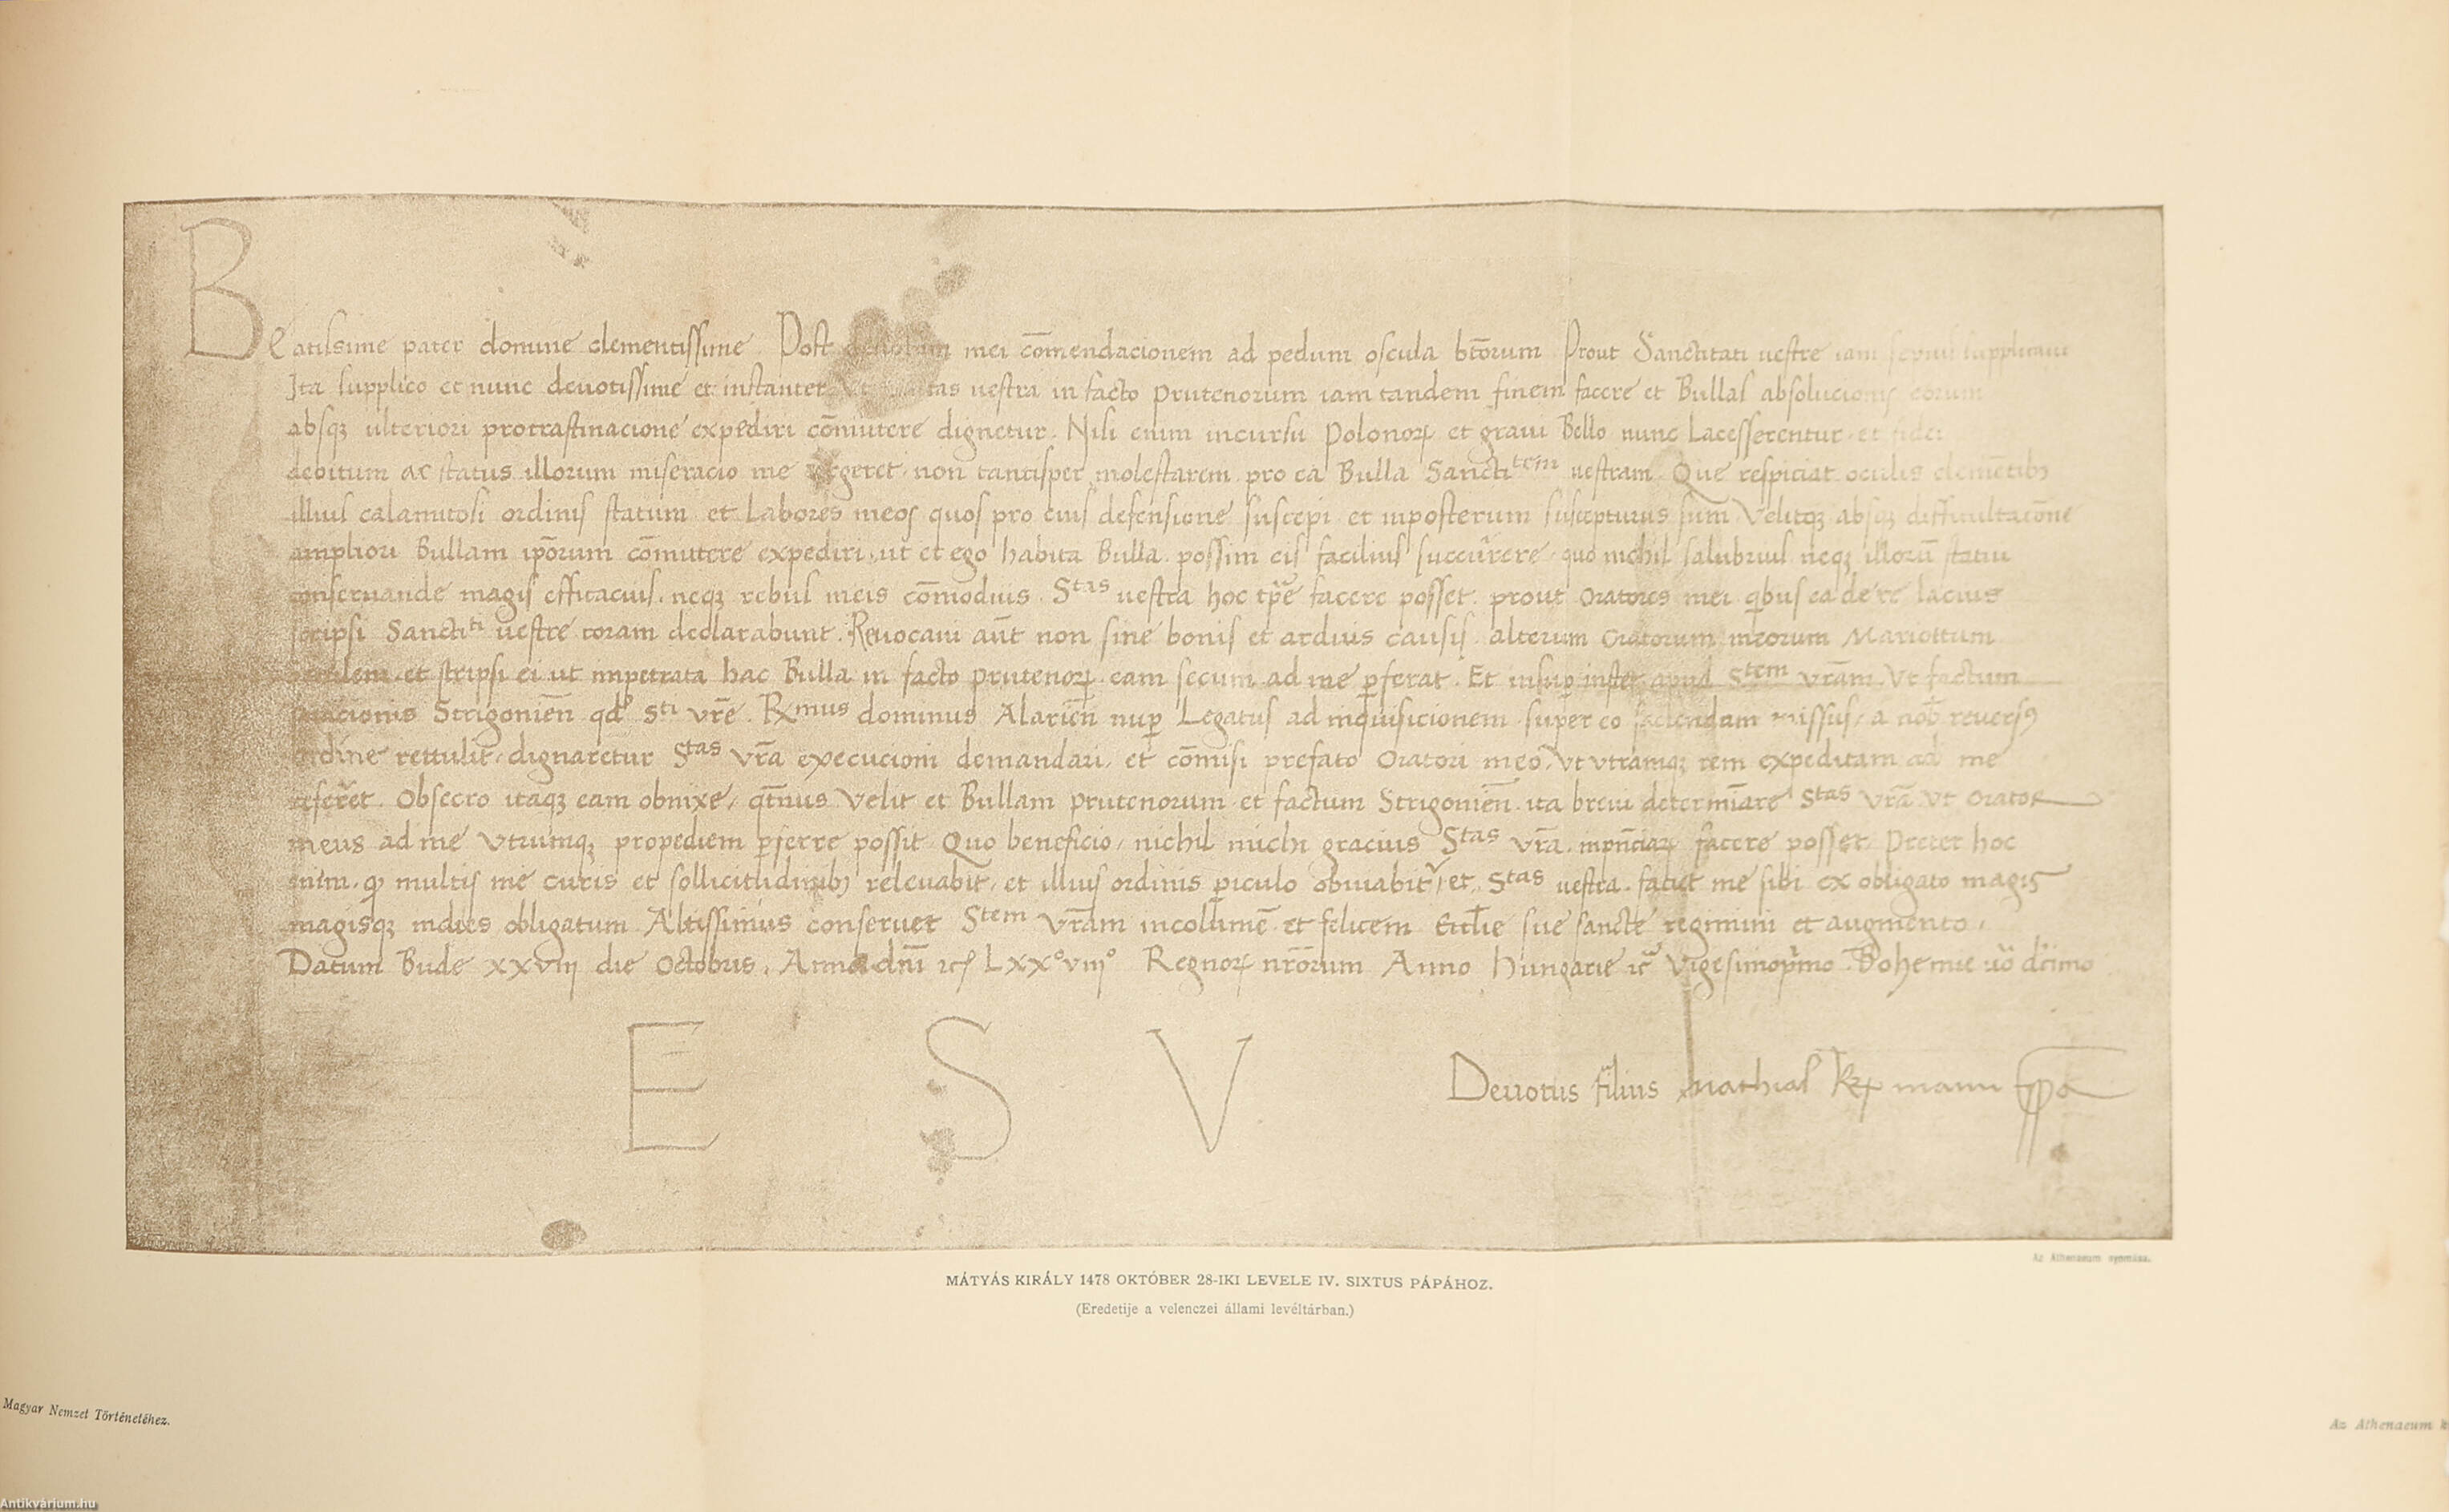 Beatissime pater domine clementissime. Post mei cōmendacionem ad pedum oscula btōrum Prout Sanctitati uestre iam sepius supplicaui
Ita supplico et nunc deuotissime et instanter uestra in facto prutenorum iam tandem finem facere et Bullas absolucionis eorum
absqꝫ ulteriori procrastinacione expediri cōmittere dignetur. Nisi enim incursu Polonorꝝ et graui Bello nunc Lacesserentur et fidei
debitum ac status illorum miseracio me urgeret, non tantisper molestarem pro ea Bulla Sanctitem uestram. Que respiciat oculis clemētibꝫ
illius calamitosi ordinis statum et Labores meos quos pro eius defensione suscepi et inposterum suscepturus sum Velitqꝫ absqꝫ difficultacōne
ampliori Bullam ipōrum cōmittere expediri, ut et ego habita Bulla possim eis facilius succurrere, quo nichil salubrius neqꝫ illorū statui
conseruande magis efficacius, neqꝫ rebus meis cōmodius. Stas uestra hoc tpre facere posset. prout Oratores mei qbus ea de re lacius
scripsi Sanctiti uestre coram declarabunt. Reuocaui aūt non sine bonis et arduis causis alterum Oratorum meorum Mariottum
et scripsi ei ut impetrata hac Bulla in facto prutenorꝝ eam secum ad me ꝑferat. Et insuꝑ instet apud Stem vrām Vt factum
Strigoniēn qd Sti vrē. Rxmus dominus Alariēn nuꝑ Legatus ad inquisicionem super eo faciendam missus, a nob reuersꝰ
ordine rettulit, dignaretur Stas vrā execucioni demandari, et cōmisi prefato Oratori meo, Vt vtramqꝫ rem expeditam ad me
referret. Obsecro itaqꝫ eam obnixe, qtēnus Velit et Bullam prutenorum et factum Strigoniēn ita breui determīare Stas vrā Vt Orator
meus ad me Vtrumqꝫ propediem ꝑferre possit Quo beneficio, nichil michi gracius Stas vrā inpn̄ciarꝝ facere posset. Preter hoc
enim, ꝙ multis me curis et sollicitudinibꝫ releuabit, et illius ordinis ꝑiculo obuiabitr, et Stas uestra faciet me sibi ex obligato magis
magisqꝫ indies obligatum Altissimus conseruet Stem vrām incolumē et felicem Eccl̄ie sue sancte regimini et augmento,
Datum Bude XXVIII die Octobris, Anno dn̄i LXXºviiiº Regnorꝝ nrōrum Anno Hungarie Vigesimoprmo Bohemie uō decimo
E S V
Deuotus filius Mathias Rex manu ppa
Az Athenaeum nyomása.
MÁTYÁS KIRÁLY 1478 OKTÓBER 28-IKI LEVELE IV. SIXTUS PÁPÁHOZ.
(Eredetije a velenczei állami levéltárban.)
Magyar Nemzet Történetéhez.
Az Athenaeum k
Antikvárium.hu